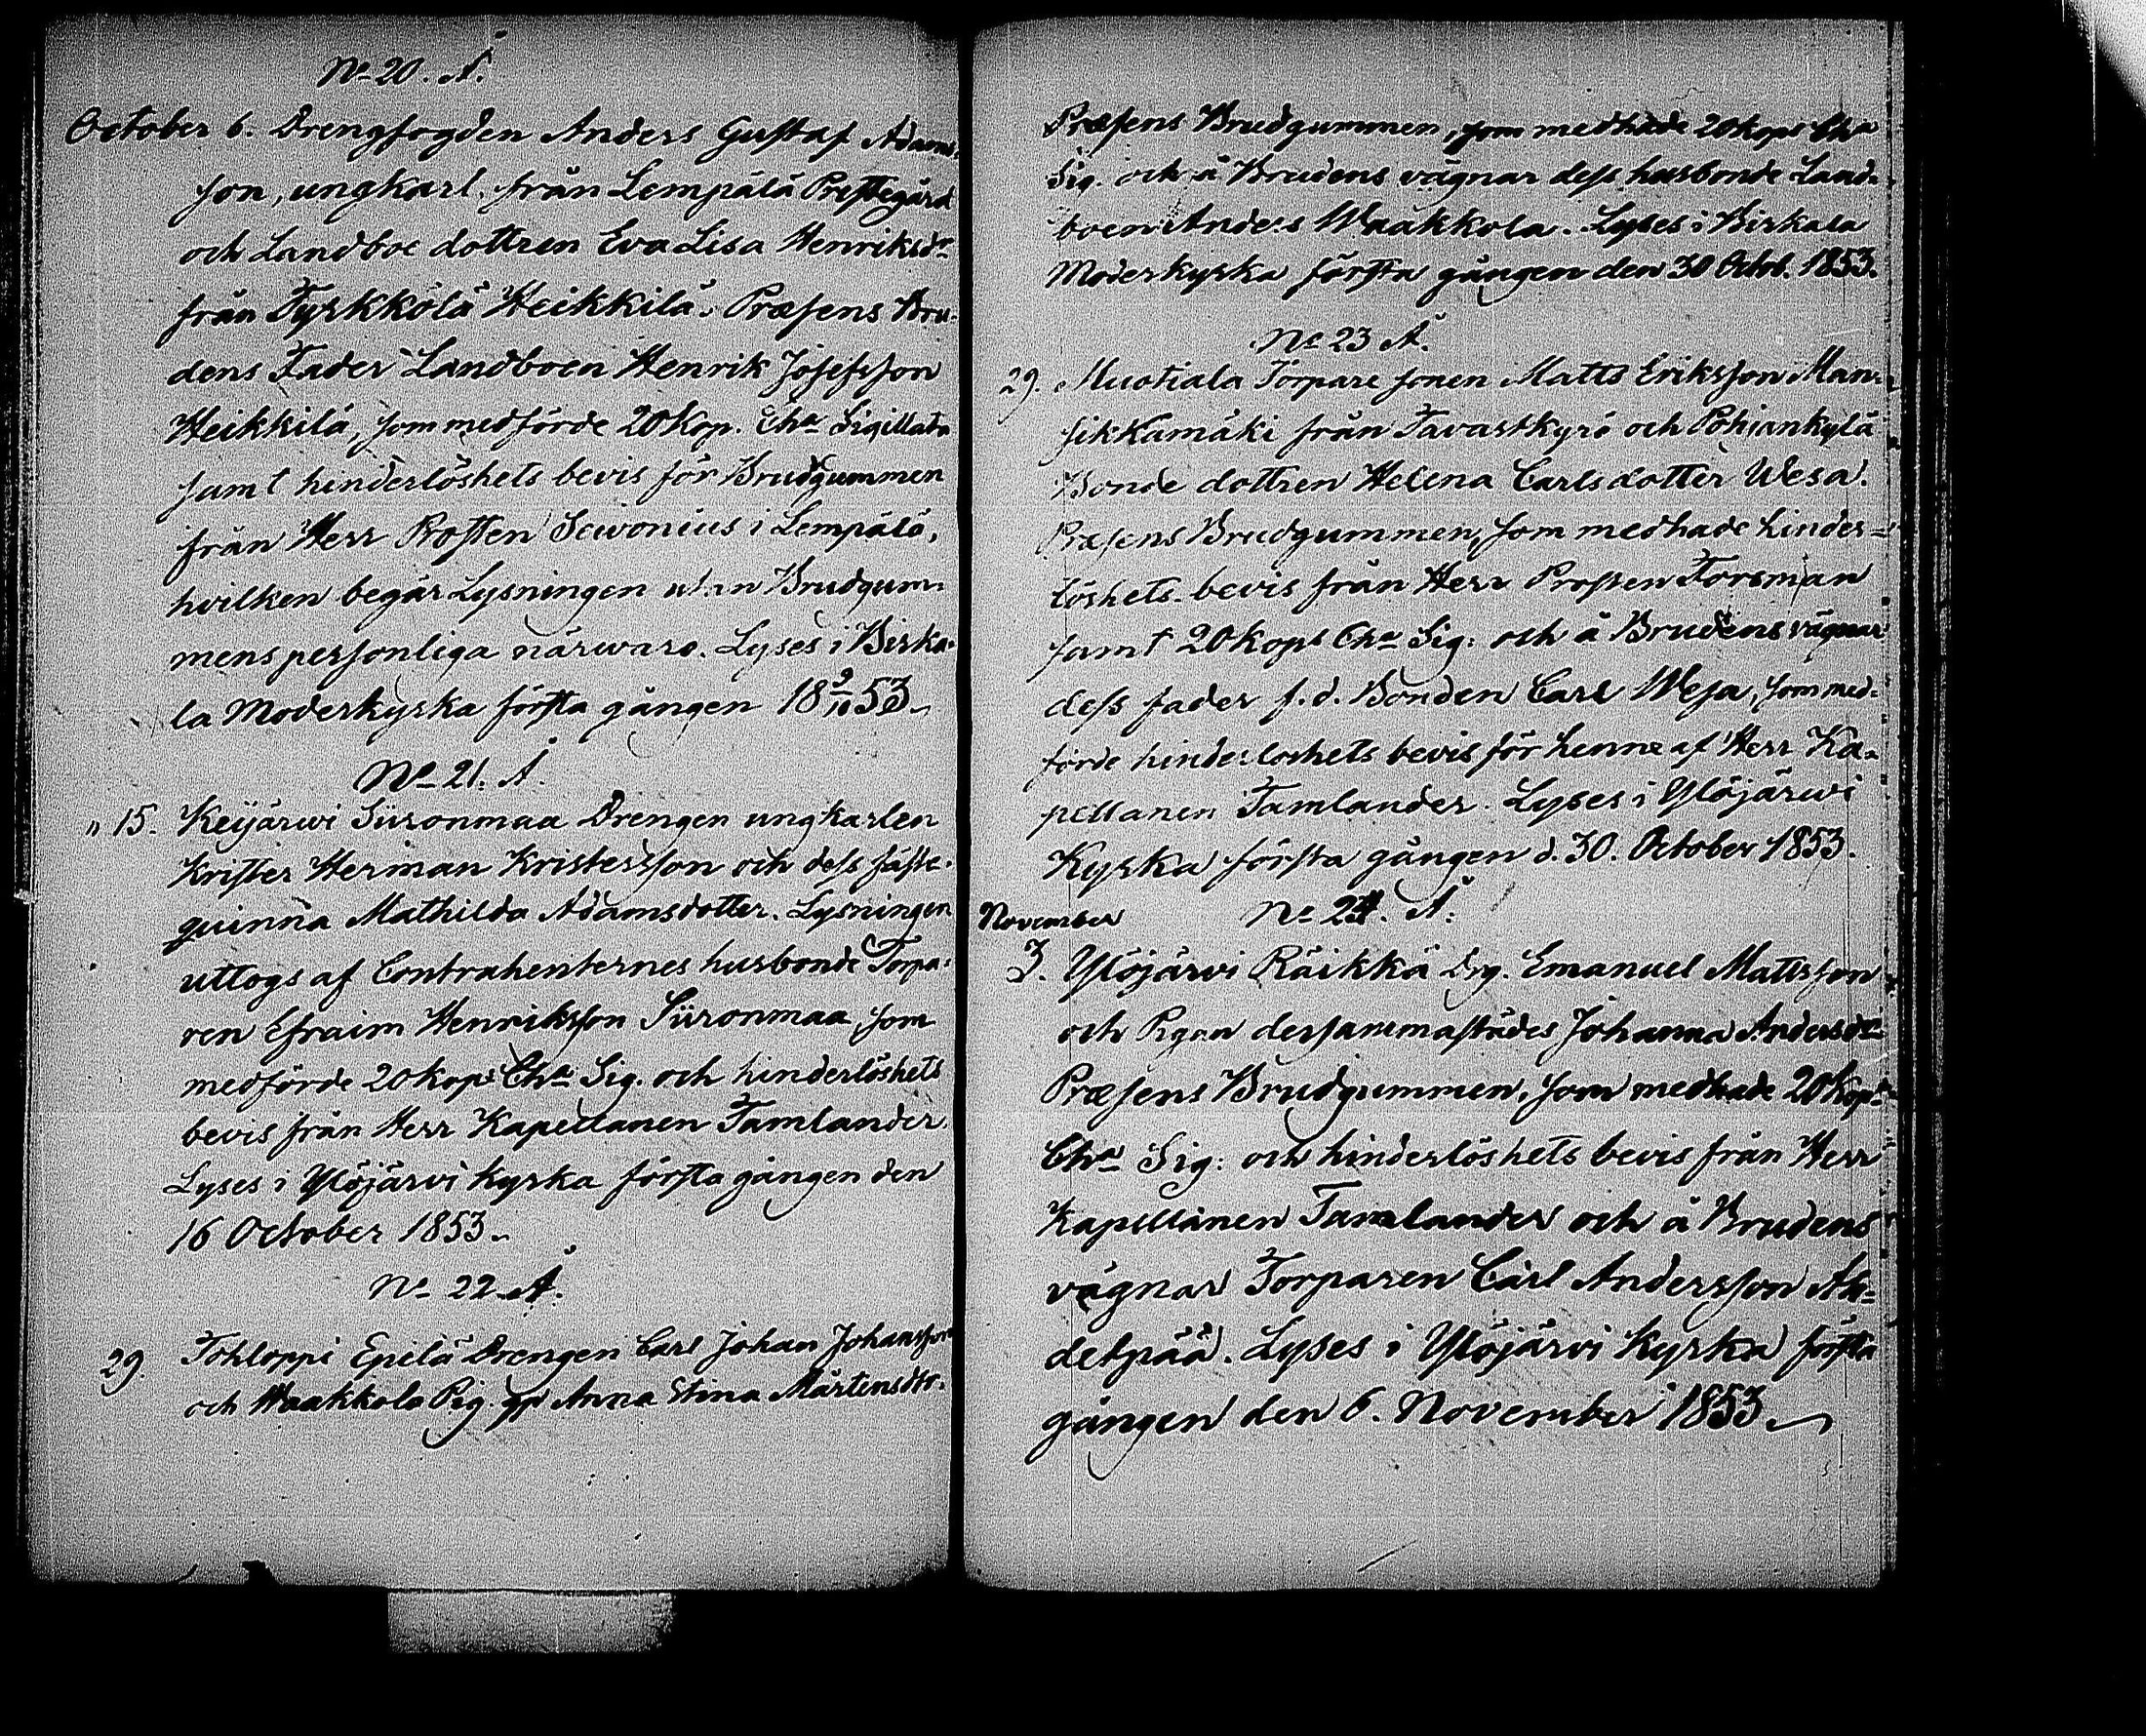 No 20. Å.
October 6. Drengfogden Anders Gustaf Adams-
son, ungkarl från Lempälä Prestegård
och Landboe dottren Eva Lisa Henriksdr
från Tyrkkölä Heikkilä. Præsens Bru-
dens Fader Landboen Henrik Josefsson
Heikkilä, som medförde 20 Kop. Cha Sigillata
samt hinderlöshets bevis för Brudgummen
från Herr Prosten Sevonius i Lempälä,
hvilken begär Lysningen utan Brudgum-
mens personliga närwaro. Lyses i Birka-
la Moderkyrka första gången 18 9/10 53.
No 21. Å.
" 15. Keijärwi Siironmaa Drengen ungkarlen
Krister Herman Kristersson och dess fäste-
quinna Mathilda Adamsdotter. Lysningen
uttogs af Contrahenternes husbonde Torpa-
ren Efraim Henriksson Siironmaa som
medförde 20 kops Cha Sig. och hinderlöshets
bevis från Herr Kapellanen Tamlander.
Lyses i Ylöjärvi kyrka första gången den
16 October 1853.
No 22 Å.
29. Tohloppi Epilä Drengen Carl Johan Johansson
och Waakkola Pig. Anna Stina Mårtensdtr.
Præsens Brudgummen, som medhade 20 kops Cha
Sig. och å Brudens vägnar dess husbonde Land-
boen Anders Waakkola. Lyses i Birkala
Moderkyrka första gången den 30 Octob. 1853.
No 23 Å.
29. Muotiala Torpare sonen Matts Eriksson Man-
sikkamäki från Tavastkyrö och Pohjankylä
Bonde dottren Helena Carlsdotter Wesa.
Præsens Brudgummen, som medhade hinder-
löshets-bevis från Herr Prosten Forsman
samt 20 kops Cha Sig: och å Brudens vägnar
dess fader f.d. Bonden Carl Wesa, som med-
förde hinderlöshets bevis för henne af Herr Ka-
pellanen Tamlander. Lyses i Ylöjärwi
Kyrka första gången d. 30. October 1853.
November No 24. Å.
3. Ylöjärvi Räikkä Drg. Emanuel Mattsson
och Pigan dersammastädes Johanna Andersdr
Præsens Brudgummen, som medhade 20 Kop.
Cha Sig: och hinderlöshets bevis från Herr
Kapellanen Tamlander och å Brudens
vägnar Torparen Carl Andersson Ah-
detpää. Lyses i Ylöjärvi Kyrka första
gången den 6. November 1853.